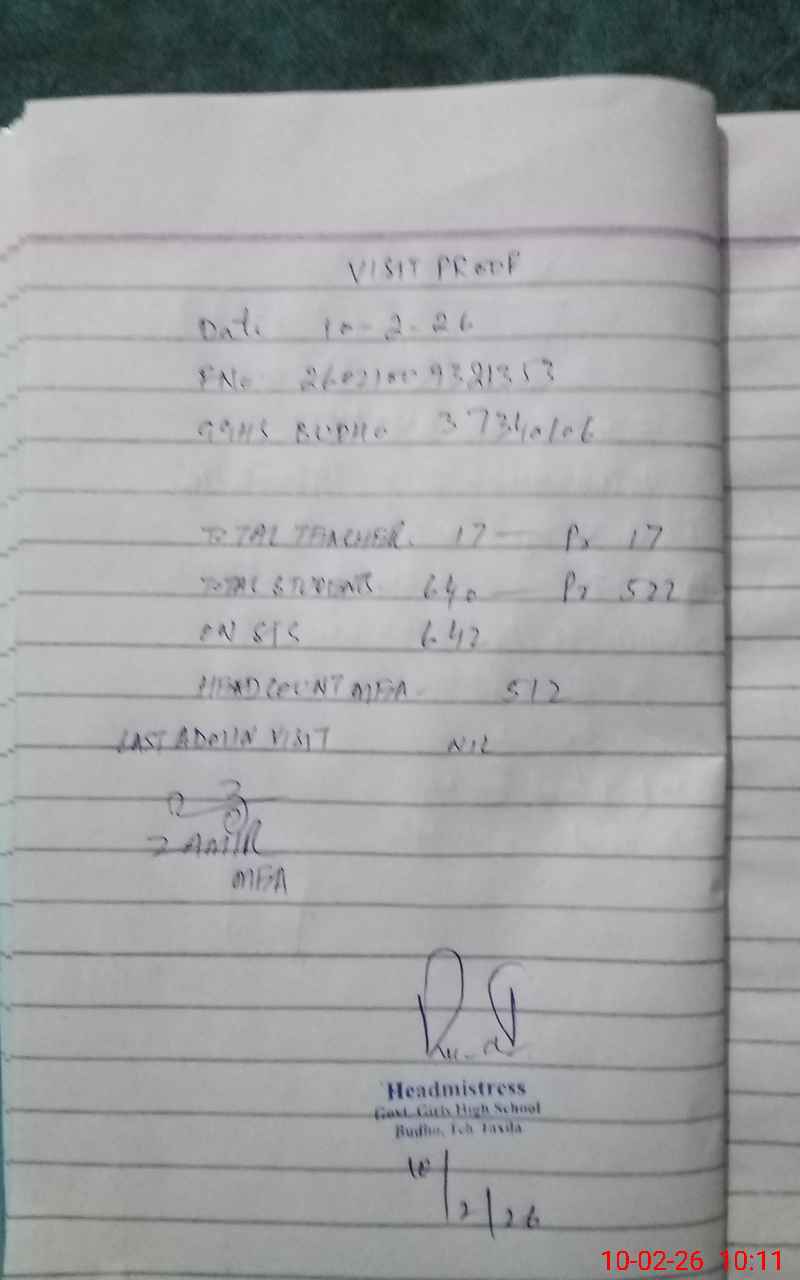 VISIT PROOF
Date 10-2-26
GGHS BUDHO 37340106
TOTAL TEACHER. 17 — Pr 17
TOTAL STUDENTS 640 — Pr 522
ON SIS 642
HEADCOUNT MEA. 512
LAST ADMIN VISIT NIL
ZAMIR
MEA
Headmistress
Govt. Girls High School
Budho, Teh. Taxila
10/2/26
10-02-26 10:11